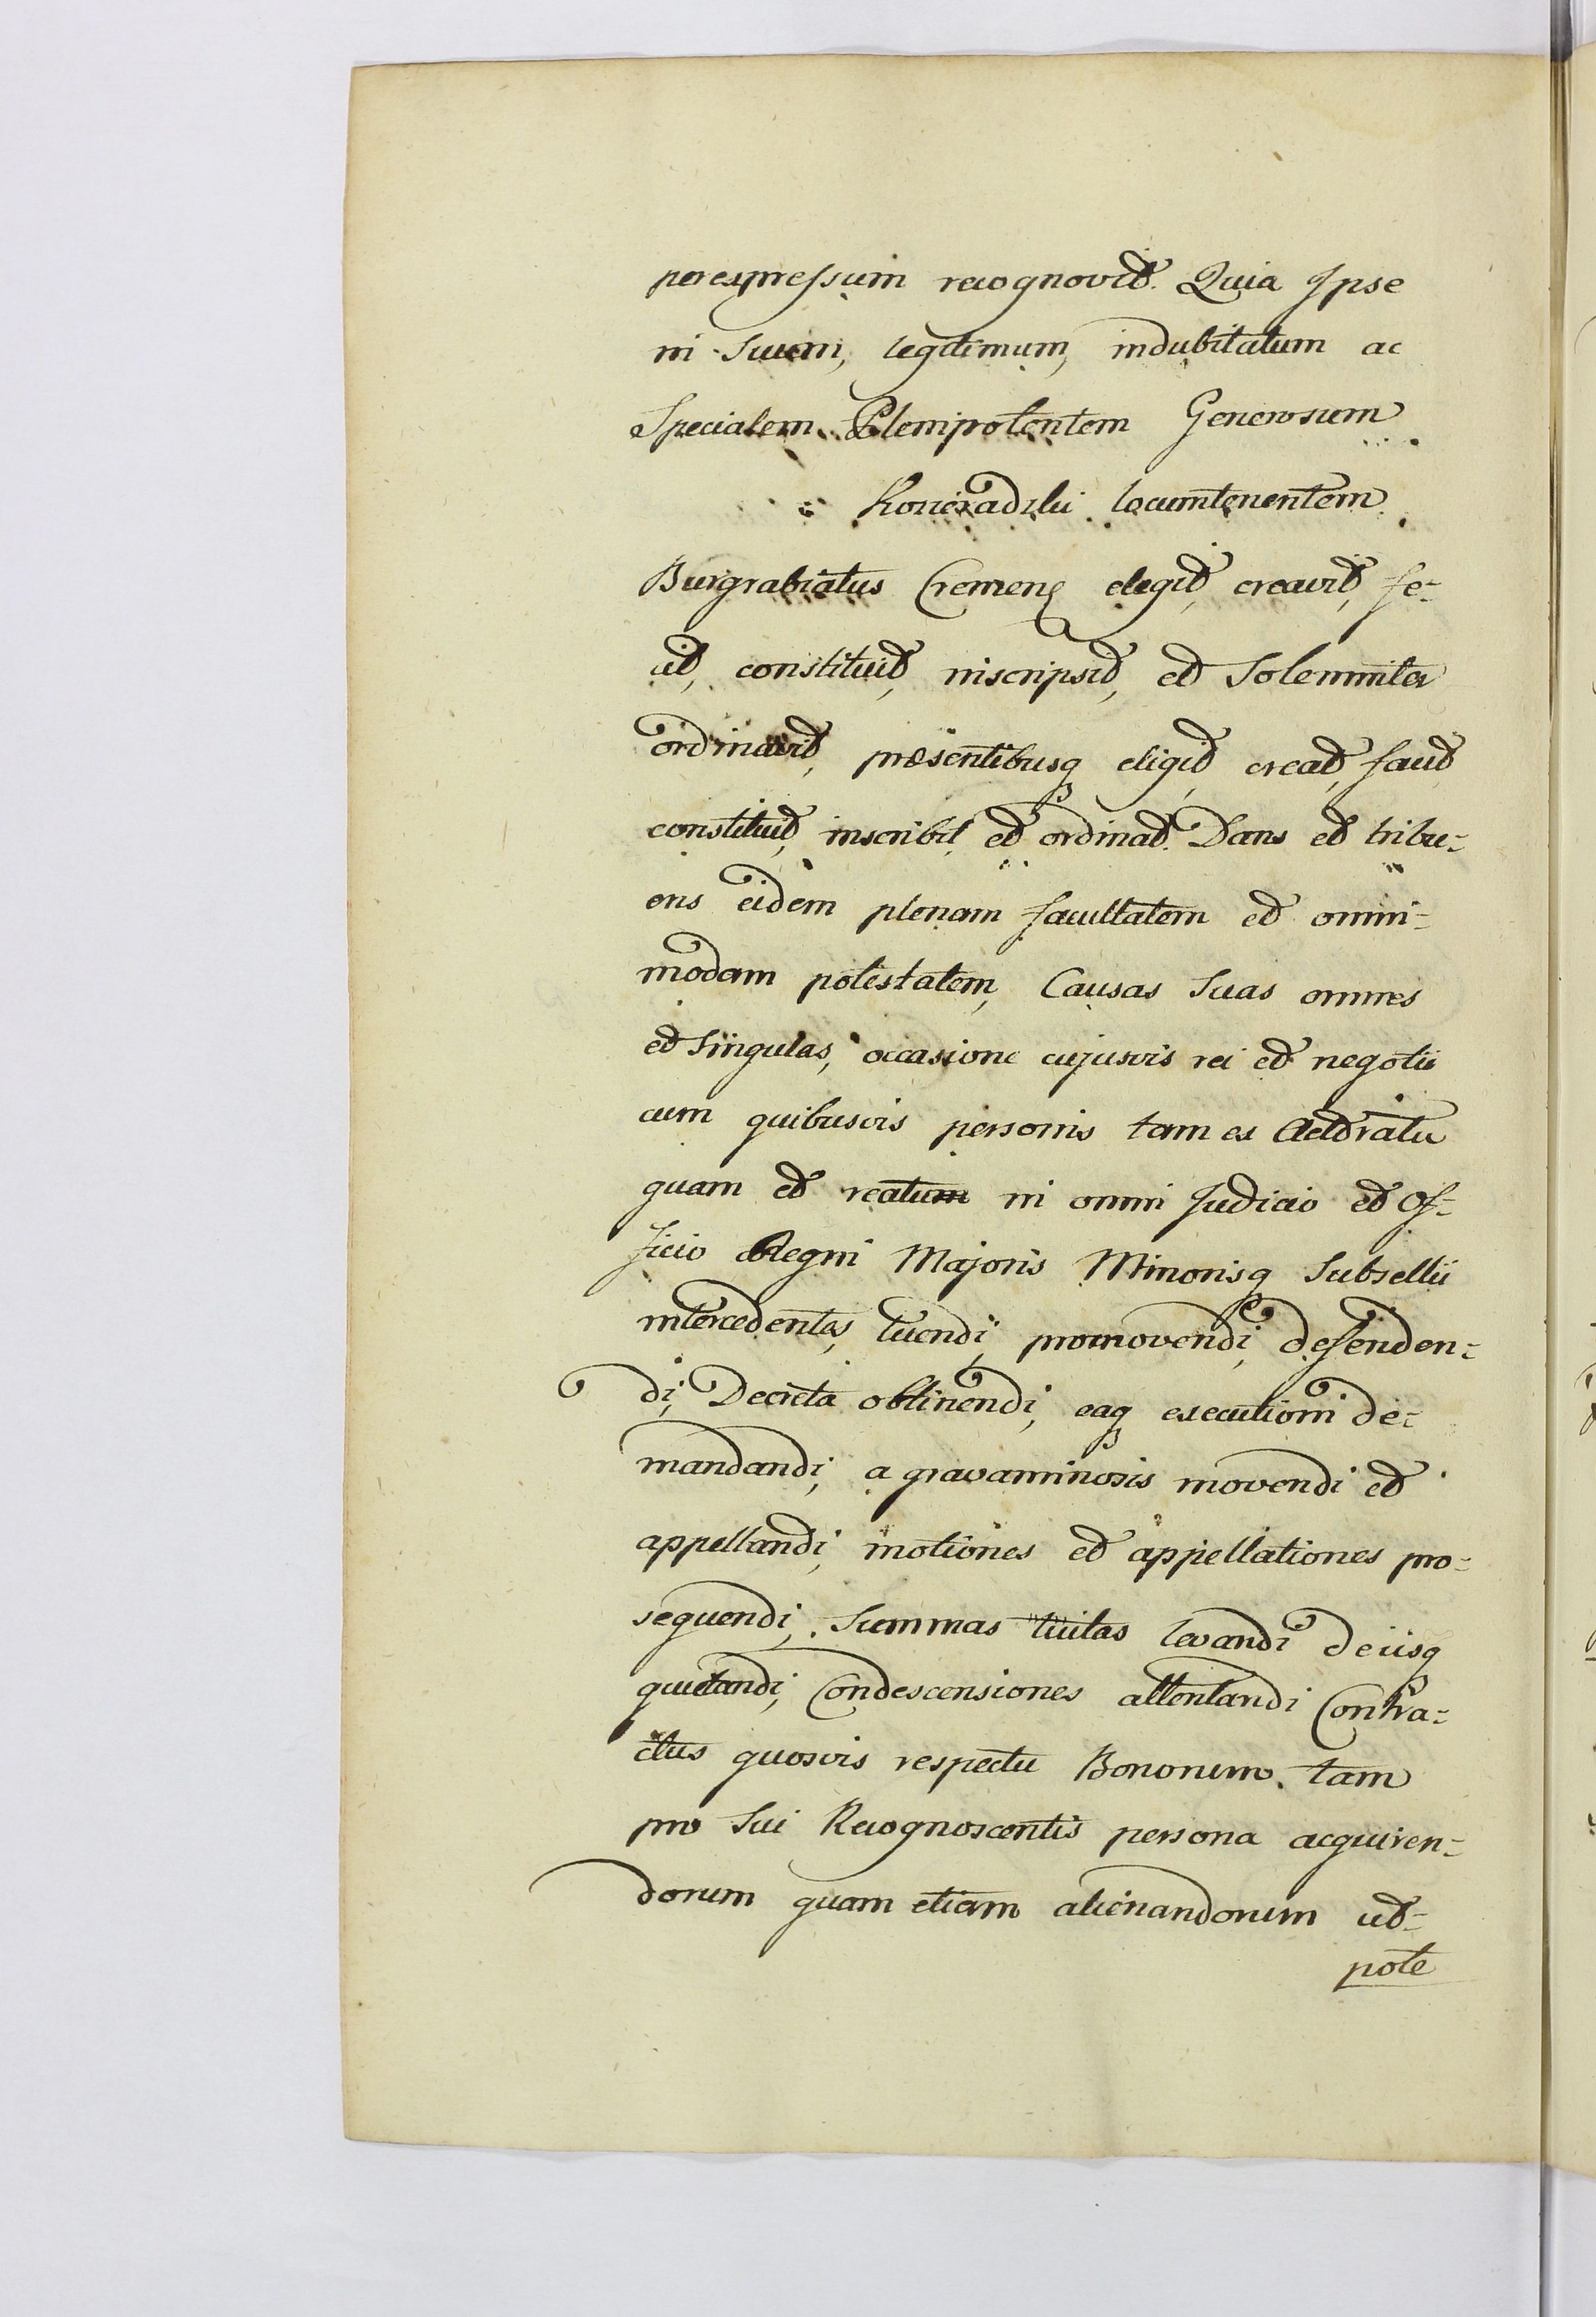 per expressum recognovit. Quia Ipse
in Suum, legitimum, indubitatum ac
Specialem Plenipotentem Generosum
locumtenentem
Burgrabiatus Cremenę elegit, creavit, fe-
cit, constituit, inscripsit, et Solemniter
ordinavit, præsentibusq eligit, creat, facit
constituit, inscribit, et ordinat. Dans et tribu-
ens eidem plenam facultatem et omni-
modam potestatem, Causas Suas omnes
et Singulas, occasione cujusvis rei et negotii
cum quibusvis personis tam ex Actoratu
quam et reatum in omni Judicio et Of-
ficio Regni Majoris Minorisq Subsellii
intercedentes, tuendi, promovendi, defenden-
di, Decreta obtinendi, eaq executioni de-
mandandi, a gravaminosis movendi et
appellandi, motiones et appellationes pro-
sequendi, Summas levandi de iisq
quietandi, Condescensiones attentandi Contra-
ctus quosvis respectu Bonorum tam
pro Sui Recognoscentis persona acquiren-
dorum quam etiam alienandorum ut-
pote